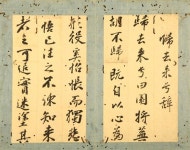 歸去来兮辞
歸去来兮田園将蕪
胡不歸既自以心為
形役奚惆悵而獨悲
悟已往之不諫知来
者之可追寔迷塗其